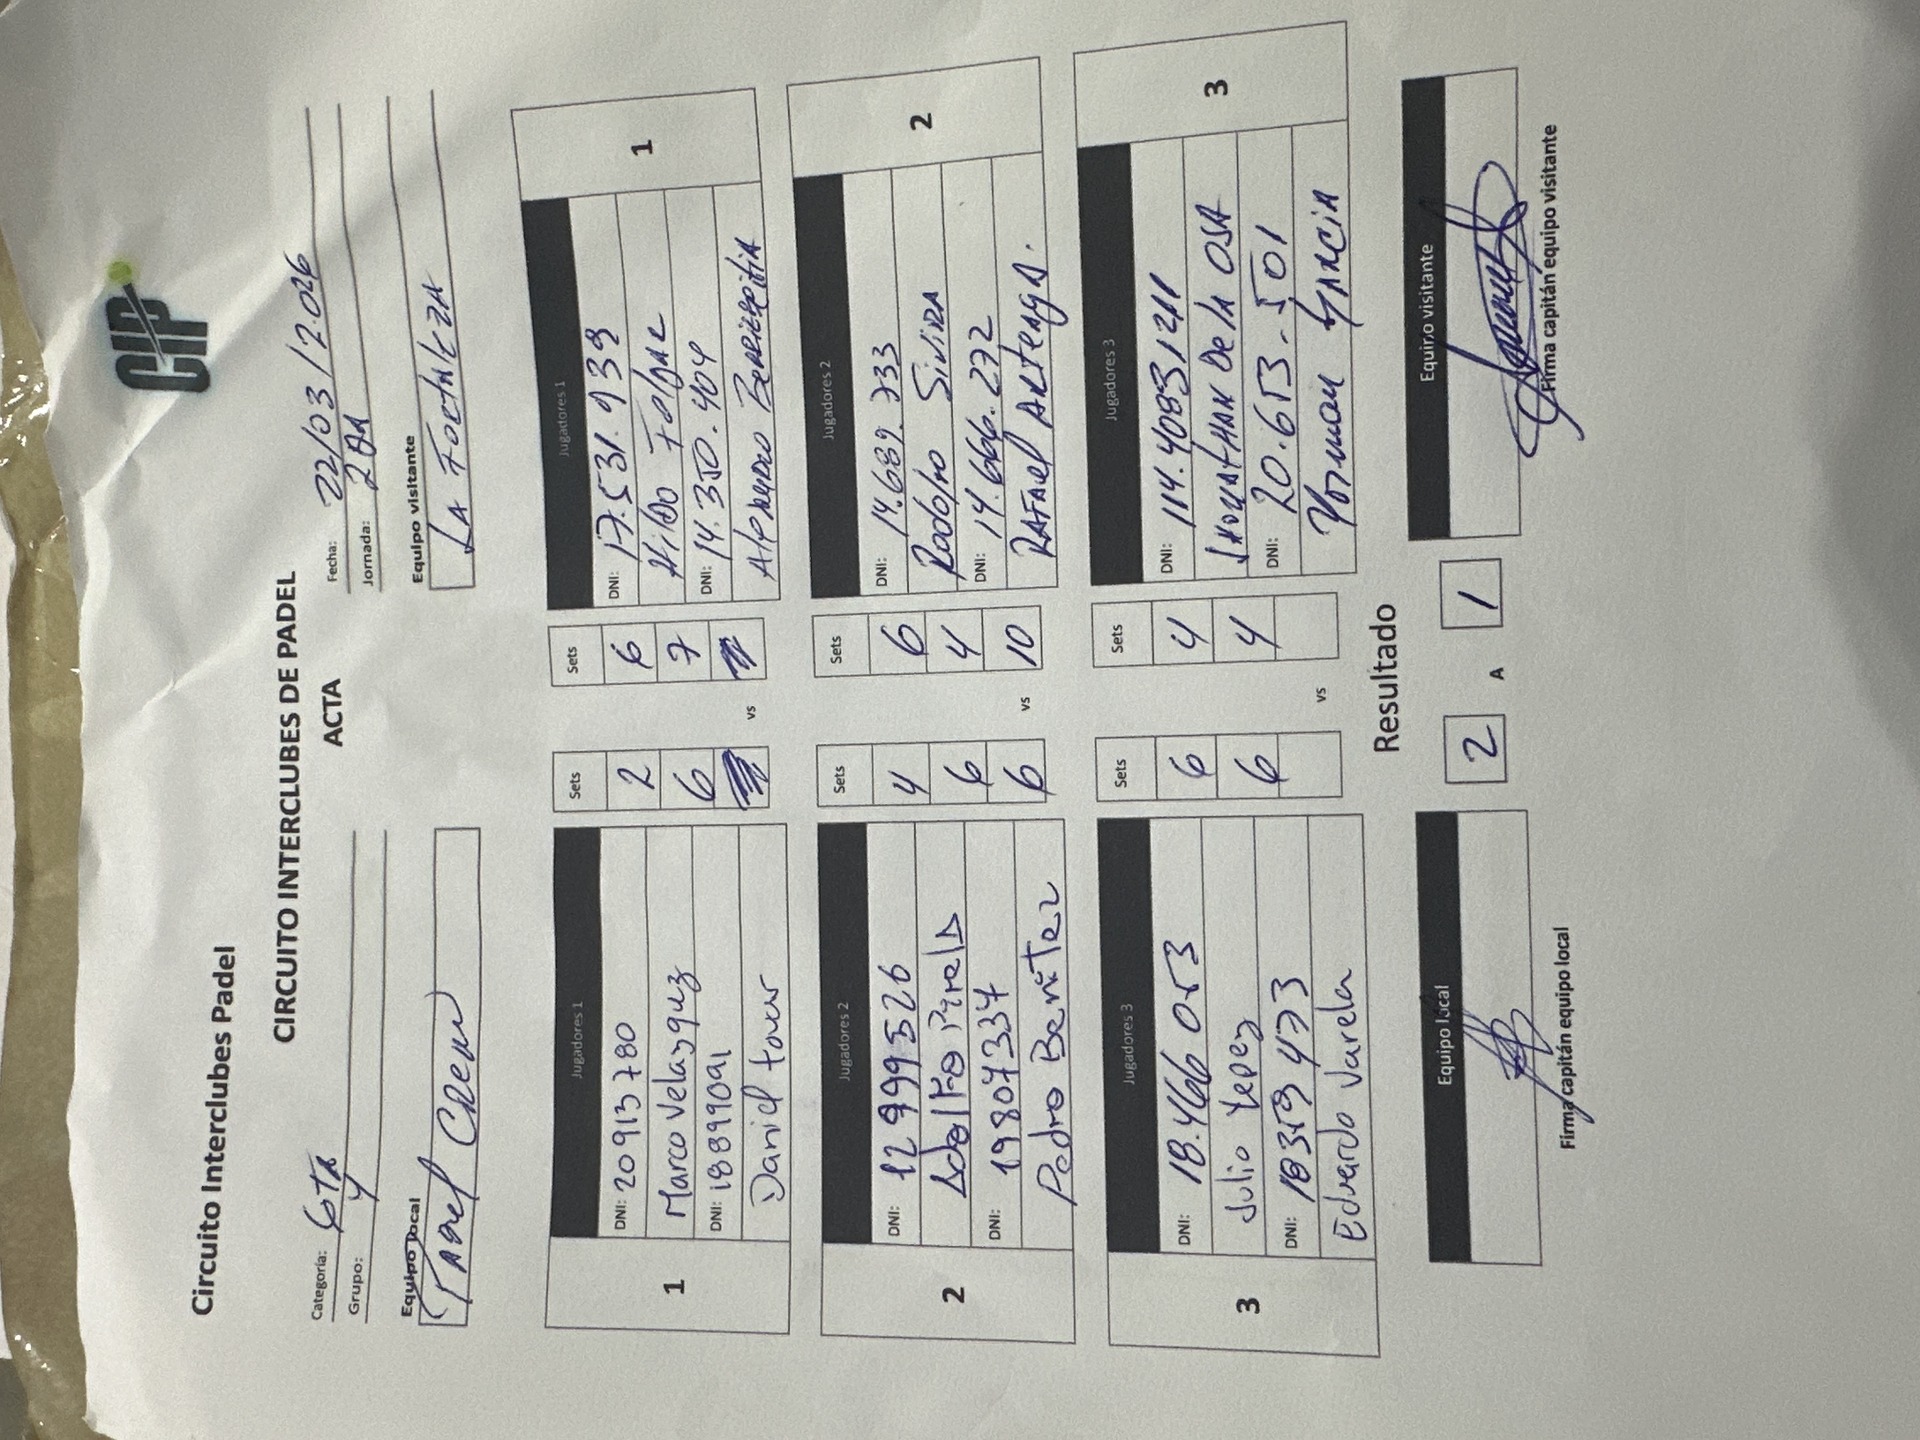 CIP
Circuito Interclubes Padel
CIRCUITO INTERCLUBES DE PADEL
ACTA
Categoría: 6TA
Fecha: 22/03/2.026
Grupo: Y
Jornada: 2DA
Equipo local
Equipo visitante
LA FORTALEZA
Jugadores 1 Sets Sets Jugadores 1
1
DNI: 20913780 2 6 DNI: 17.531.939
Marco Velazquez 6 7 Hildo
DNI: 18899091 DNI: 14.350.404
Daniel tovar vs Alfredo
1
Jugadores 2 Sets Sets Jugadores 2
2
DNI: 12999526 4 6 DNI: 14.689.733
Adolfo Pirela 6 4 Rodolfo
DNI: 19807334 6 10 DNI: 14.666.272
Pedro Benitez vs RAFAEL ARTEAGA.
2
Jugadores 3 Sets Sets Jugadores 3
3
DNI: 18.466 053 6 4 DNI: 114.40831211
Julio Yepez 6 4 De la OSA
DNI: 18359473 DNI: 20.653.501
Eduardo Varela vs Yorman GARCIA
3
Resultado
Equipo local 2 A 1 Equipo visitante
Firma capitán equipo local
Firma capitán equipo visitante